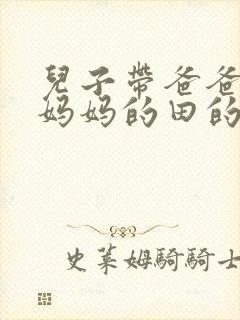 兒子帶爸爸
妈妈的田的
史莱姆騎騎士